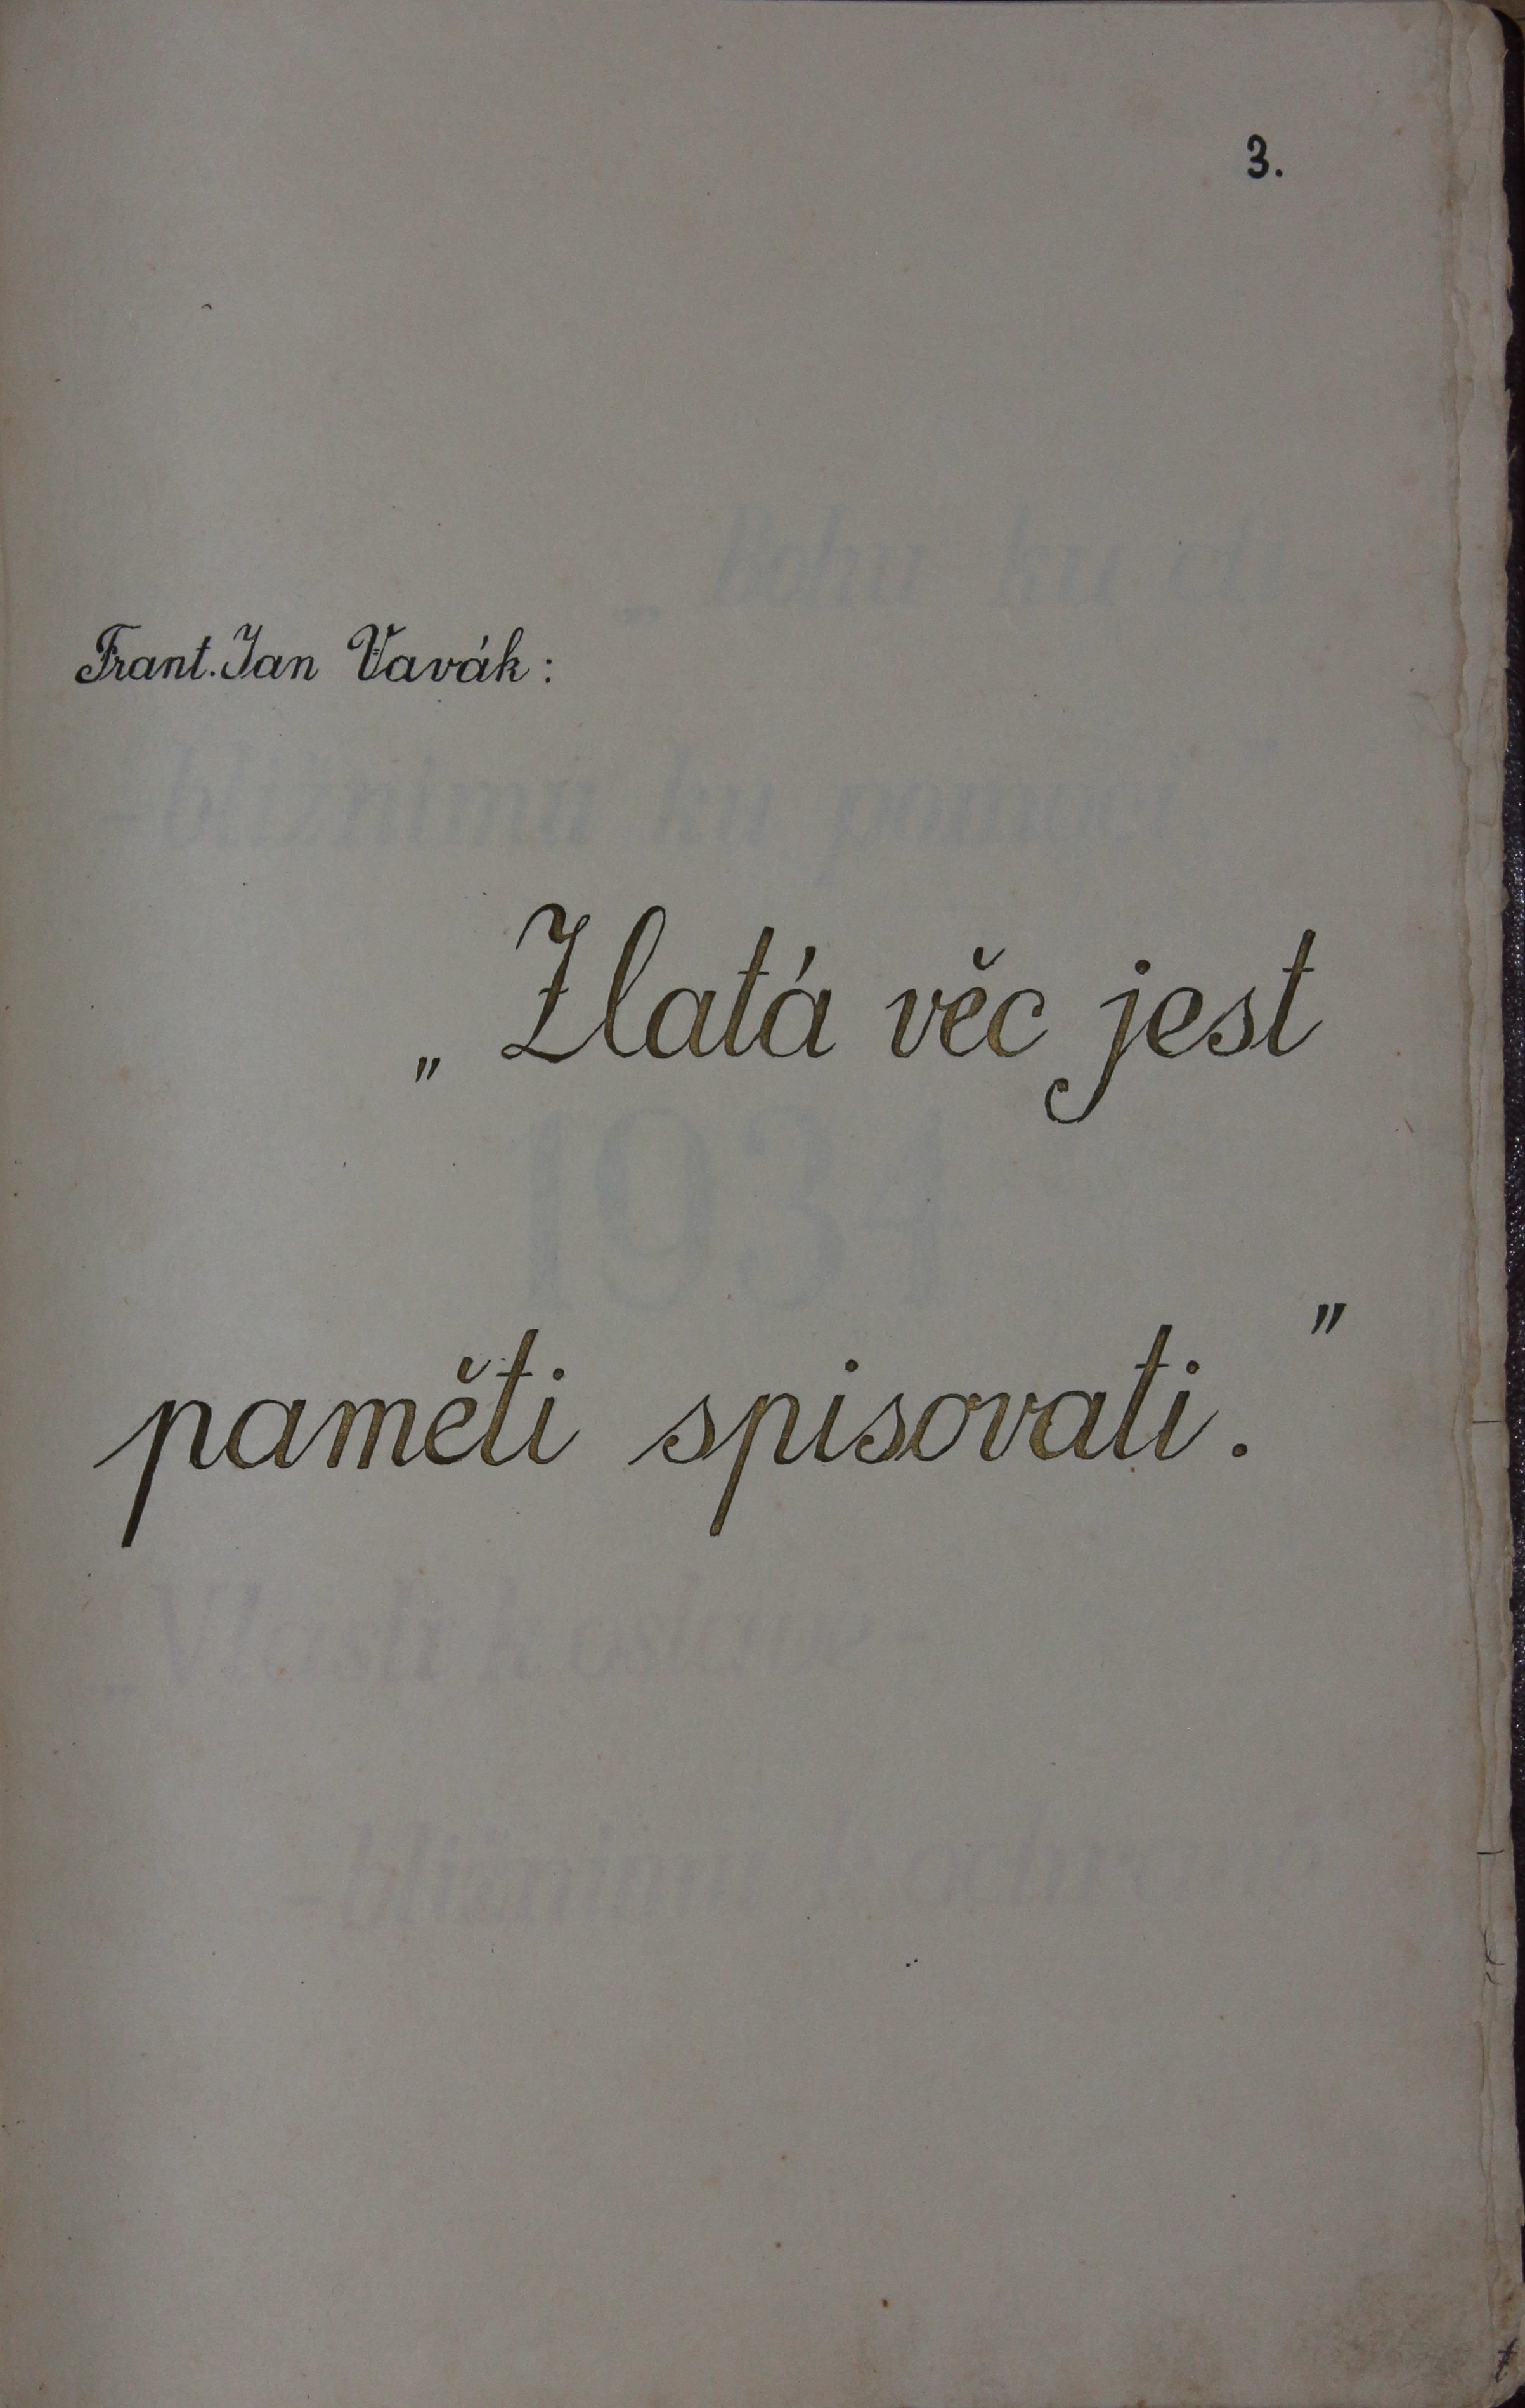 3.
Frant. Jan Vavák:
„Zlatá věc jest
paměti spisovati."